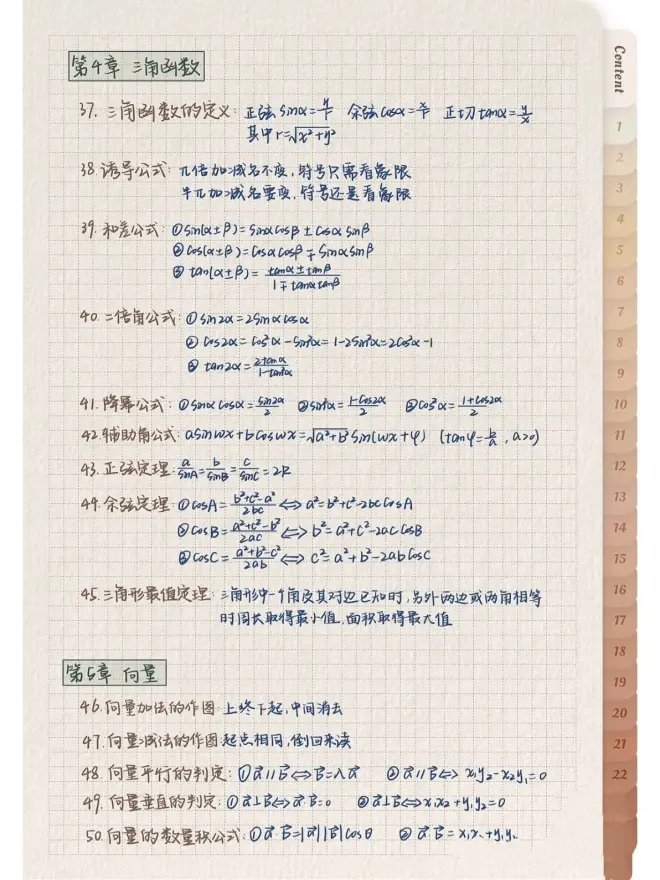 第4章 三角函数
37. 三角函数的定义: 正弦 sinα=y/r 余弦 cosα=x/r 正切 tanα=y/x
其中 r=√(x²+y²)
38. 诱导公式: π倍加减名不变, 符号只需看象限
半π加减名要变, 符号还是看象限
39. 和差公式: ①sin(α±β)=sinαcosβ±cosαsinβ
②cos(α±β)=cosαcosβ∓sinαsinβ
③tan(α±β)=(tanα±tanβ)/(1∓tanαtanβ)
40. 二倍角公式: ①sin2α=2sinαcosα
②cos2α=cos²α-sin²α=1-2sin²α=2cos²α-1
③tan2α=2tanα/(1-tan²α)
41. 降幂公式: ①sinαcosα=sin2α/2 ②sin²α=(1-cos2α)/2 ③cos²α=(1+cos2α)/2
42. 辅助角公式: asinwx+bcoswx=√(a²+b²)sin(wx+φ) (tanφ=b/a, a>0)
43. 正弦定理: a/sinA=b/sinB=c/sinC=2R
44. 余弦定理: ①cosA=(b²+c²-a²)/2bc⇔a²=b²+c²-2bccosA
②cosB=(a²+c²-b²)/2ac⇔b²=a²+c²-2accosB
③cosC=(a²+b²-c²)/2ab⇔c²=a²+b²-2abcosC
45. 三角形最值定理: 三角形中一个角及其对边已知时, 另外两边或两角相等
时周长取得最小值, 面积取得最大值
第5章 向量
46. 向量加法的作图: 上终下起, 中间消去
47. 向量减法的作图: 起点相同, 倒回来读
48. 向量平行的判定: ①a⃗∥b⃗⇔b⃗=λa⃗ ②a⃗∥b⃗⇔x₁y₂-x₂y₁=0
49. 向量垂直的判定: ①a⃗⊥b⃗⇔a⃗·b⃗=0 ②a⃗⊥b⃗⇔x₁x₂+y₁y₂=0
50. 向量的数量积公式: ①a⃗·b⃗=|a⃗||b⃗|cosθ ②a⃗·b⃗=x₁x₂+y₁y₂
Content
1
2
3
4
5
6
7
8
9
10
11
12
13
14
15
16
17
18
19
20
21
22